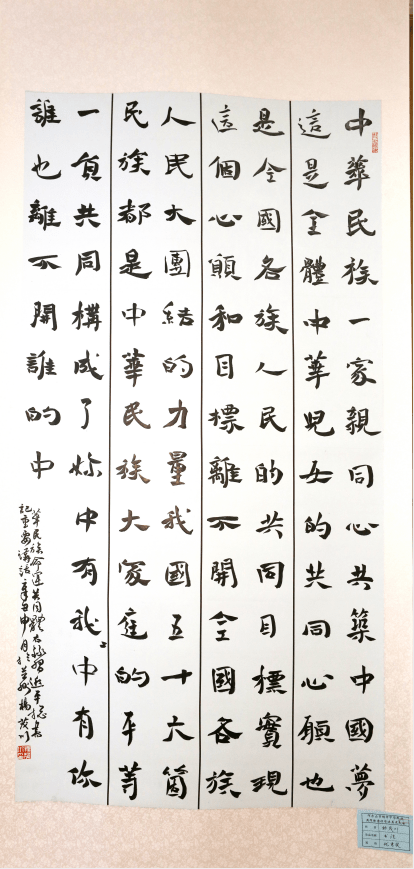 中華民族一家親同心共築中國夢
這是全體中華兒女的共同心願也
是全國各族人民的共同目標實現
這個心願和目標離不開全國各族
人民大團結的力量我國五十六箇
民族都是中華民族大家庭的平等
一員共同構成了你中有我々中有你
誰也離不開誰的中
華民族命運共同體右錄習近平總書
記重要講話辛丑申月於